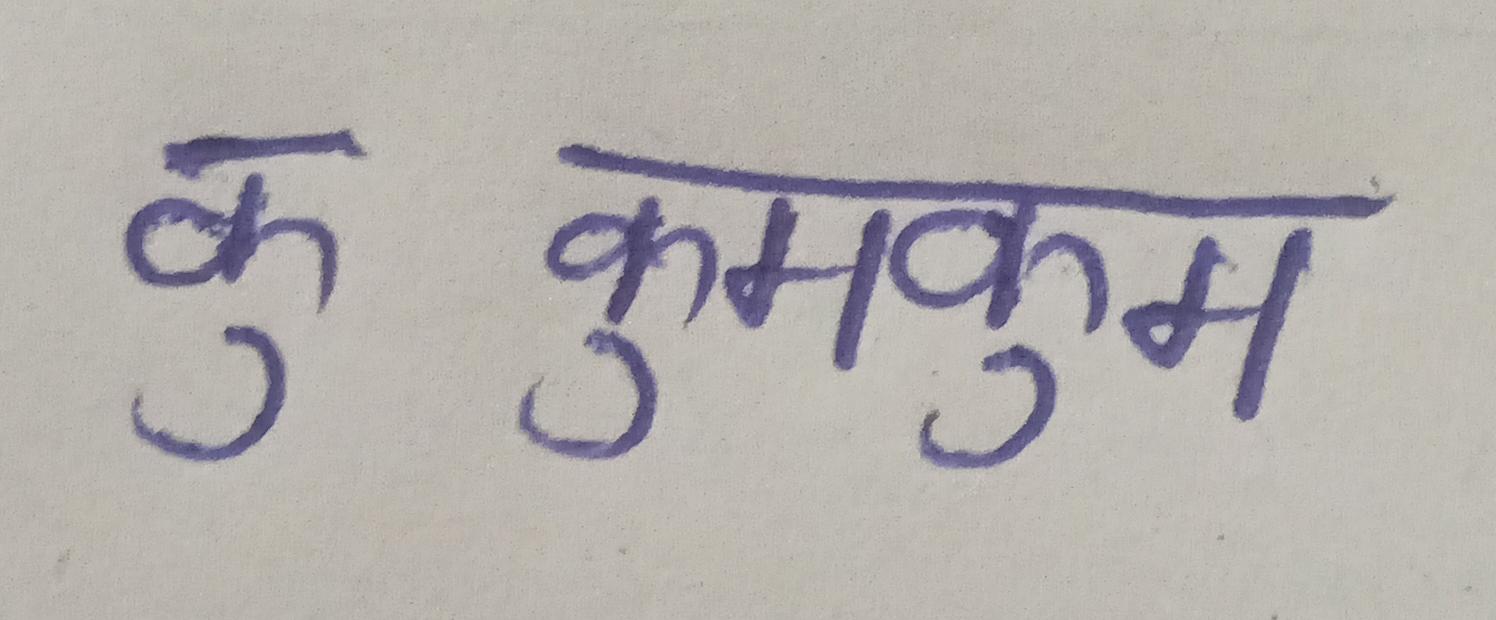 कु कुमकुम